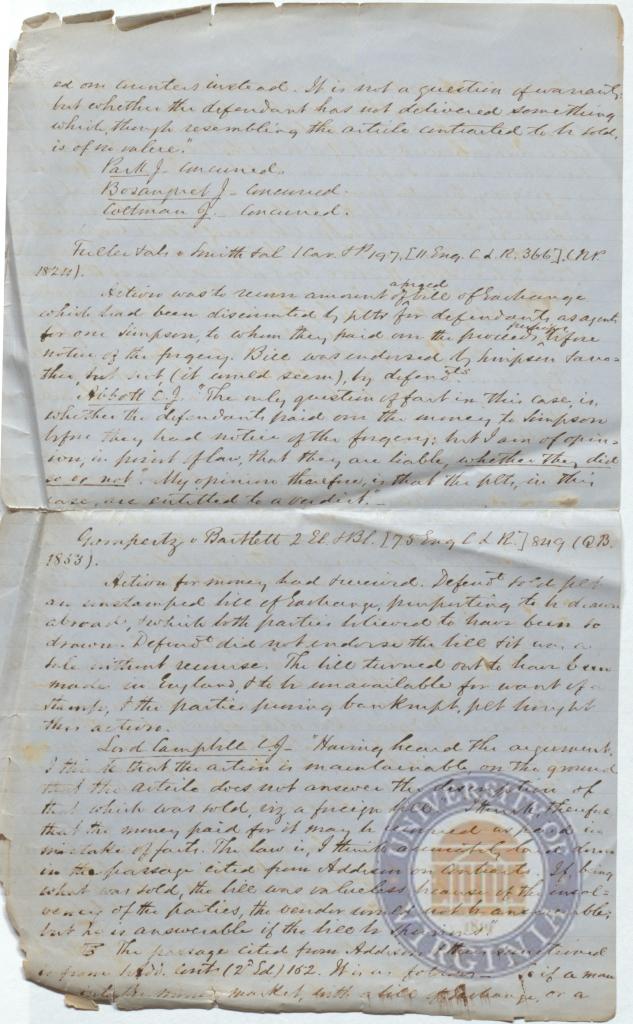 ed on counters instead. It is not a question of warranty,
but whether the defendant has not delivered something
which, though resembling the article contracted to be sold,
is of no value."
Park J- concurred.
Bosanquet J- concurred.
Coltman J- concurred.
Fuller & als v Smith & al 1 Car. & P 197, [11 Eng. C L R. 366]. (NP
1824).
Action was to recover amount of a forged bill of Exchange
which had been discounted by pltfs for defendants as agents
for one Simpson, to whom they paid over the proceeds before
notice of the forgery. Bill was endorsed by Simpson
but not, (it would seem), by defendts
Abbott C.J. "The only question of fact in this case is,
whether the defendants paid over the money to Simpson
before they had notice of the forgery; but I am of opin-
ion, in point of law, that they are liable, whether they did
so or not". My opinion therefore, is that the pltfs, in this
case, are entitled to a verdict."
Gompertz v Bartlett 2 El. & Bl. [75 Eng C L R.] 849 (Q.B.
1853).
Action for money had & received. Defendt sold pltf
an unstamped bill of Exchange, purporting to be drawn
abroad, & which both parties believed to have been so
drawn. Defendt did not endorse the bill & it was a
sale without recourse. The bill turned out to have been
made in England, & to be unavailable for want of a
stamp, & the parties proving bankrupt, pltf brought
this action.
Lord Campbell C.J- "Having heard the argument,
I think that the action is maintainable, on the ground
that the article does not answer the description of
that which was sold, viz a foreign bill. I think, therefore
that the money paid for it may be recovered as paid in
mistake of facts. The law is, I think accurately laid down
in the passage cited from Addison on Contracts. If, being
what was sold, the bill was valueless because of the insol-
vency of the parties, the vendor would not be answerable;
but he is answerable if the bill be spurious.
The passage cited from Addison
is from Add. Cont. (2d Ed) 152. It is as follows- "if a man
market, with a bill of Exchange, or a
UNIVERSITY OF VIRGINIA
1819